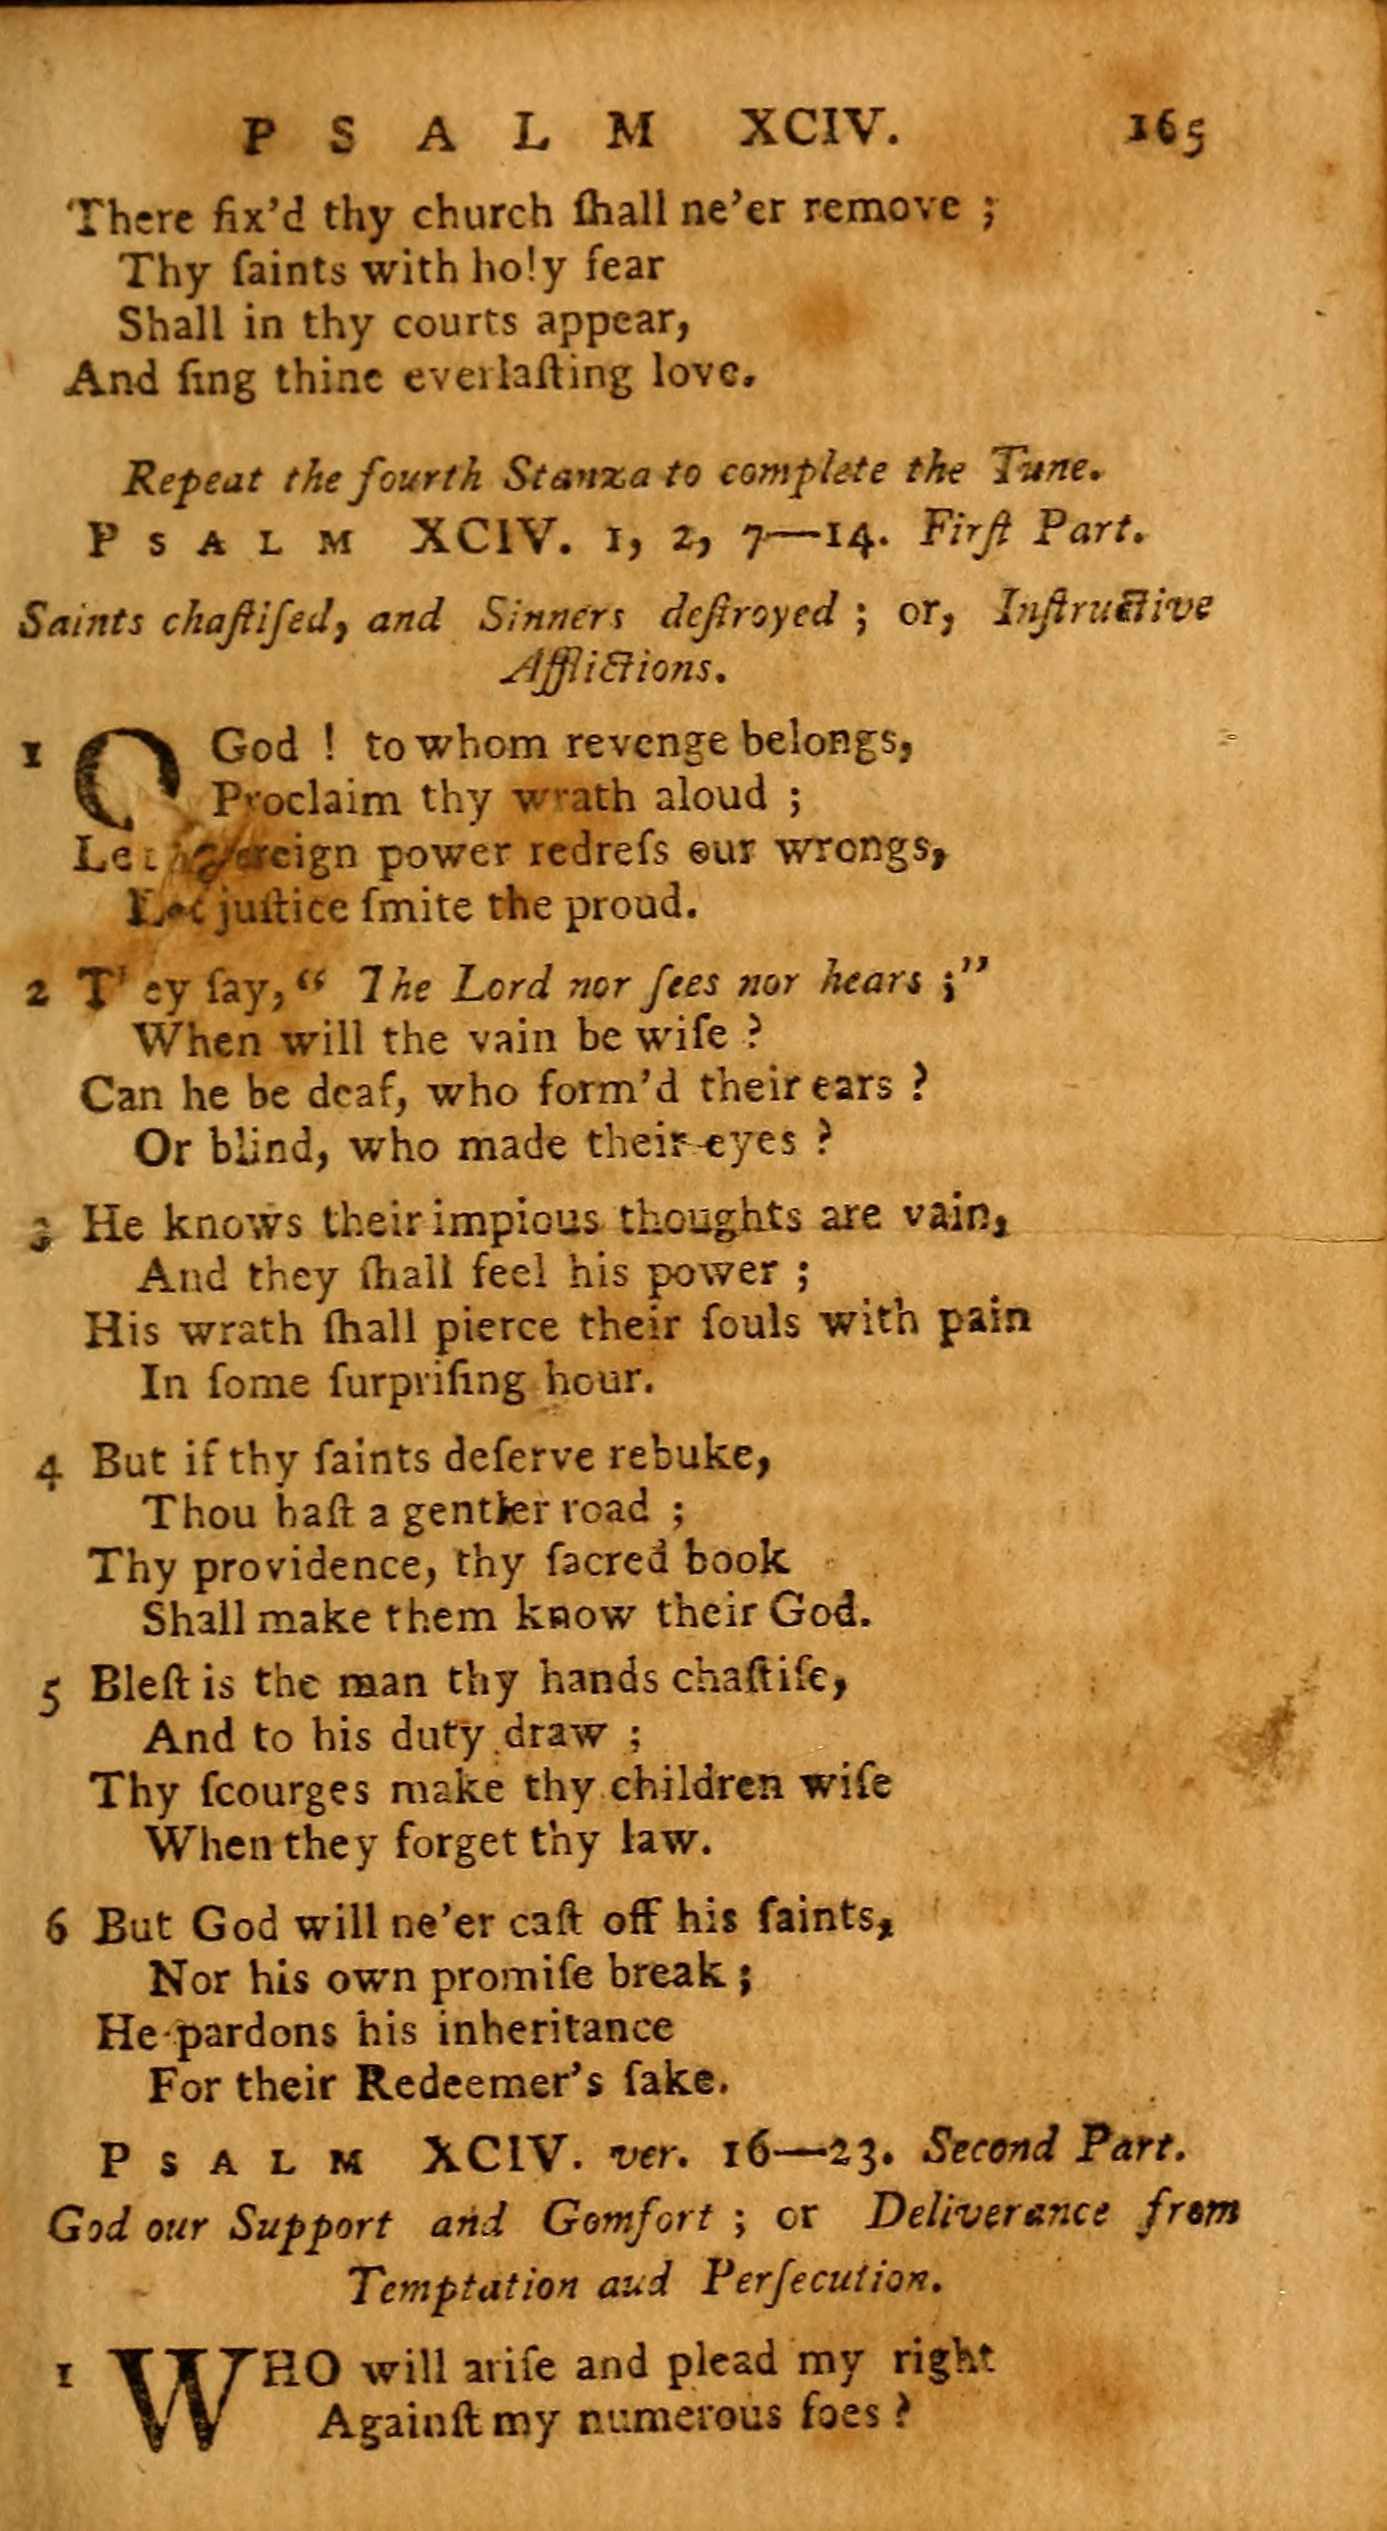 PSALM XCIV. 165
There fix'd thy church ſhall ne'er remove ;
Thy ſaints with holy fear
Shall in thy courts appear,
And ſing thine everlaſting love.
Repeat the fourth Stanza to complete the Tune.
PSALM XCIV. 1, 2, 7—14. Firſt Part.
Saints chaſtiſed, and Sinners deſtroyed ; or, Inſtructive
Afflictions.
1 O God ! to whom revenge belongs,
Proclaim thy wrath aloud ;
Let ſovereign power redreſs our wrongs,
Let juſtice ſmite the proud.
2 They ſay, “ The Lord nor ſees nor hears ;”
When will the vain be wiſe ?
Can he be deaf, who form'd their ears ?
Or blind, who made their eyes ?
3 He knows their impious thoughts are vain,
And they ſhall feel his power ;
His wrath ſhall pierce their ſouls with pain
In ſome ſurpriſing hour.
4 But if thy ſaints deſerve rebuke,
Thou haſt a gentler road ;
Thy providence, thy ſacred book
Shall make them know their God.
5 Bleſt is the man thy hands chaſtiſe,
And to his duty draw ;
Thy ſcourges make thy children wiſe
When they forget thy law.
6 But God will ne'er caſt off his ſaints,
Nor his own promiſe break ;
He pardons his inheritance
For their Redeemer's ſake.
PSALM XCIV. ver. 16—23. Second Part.
God our Support and Gomfort ; or Deliverance from
Temptation aud Perſecution.
1 WHO will ariſe and plead my right
Againſt my numerous foes ?